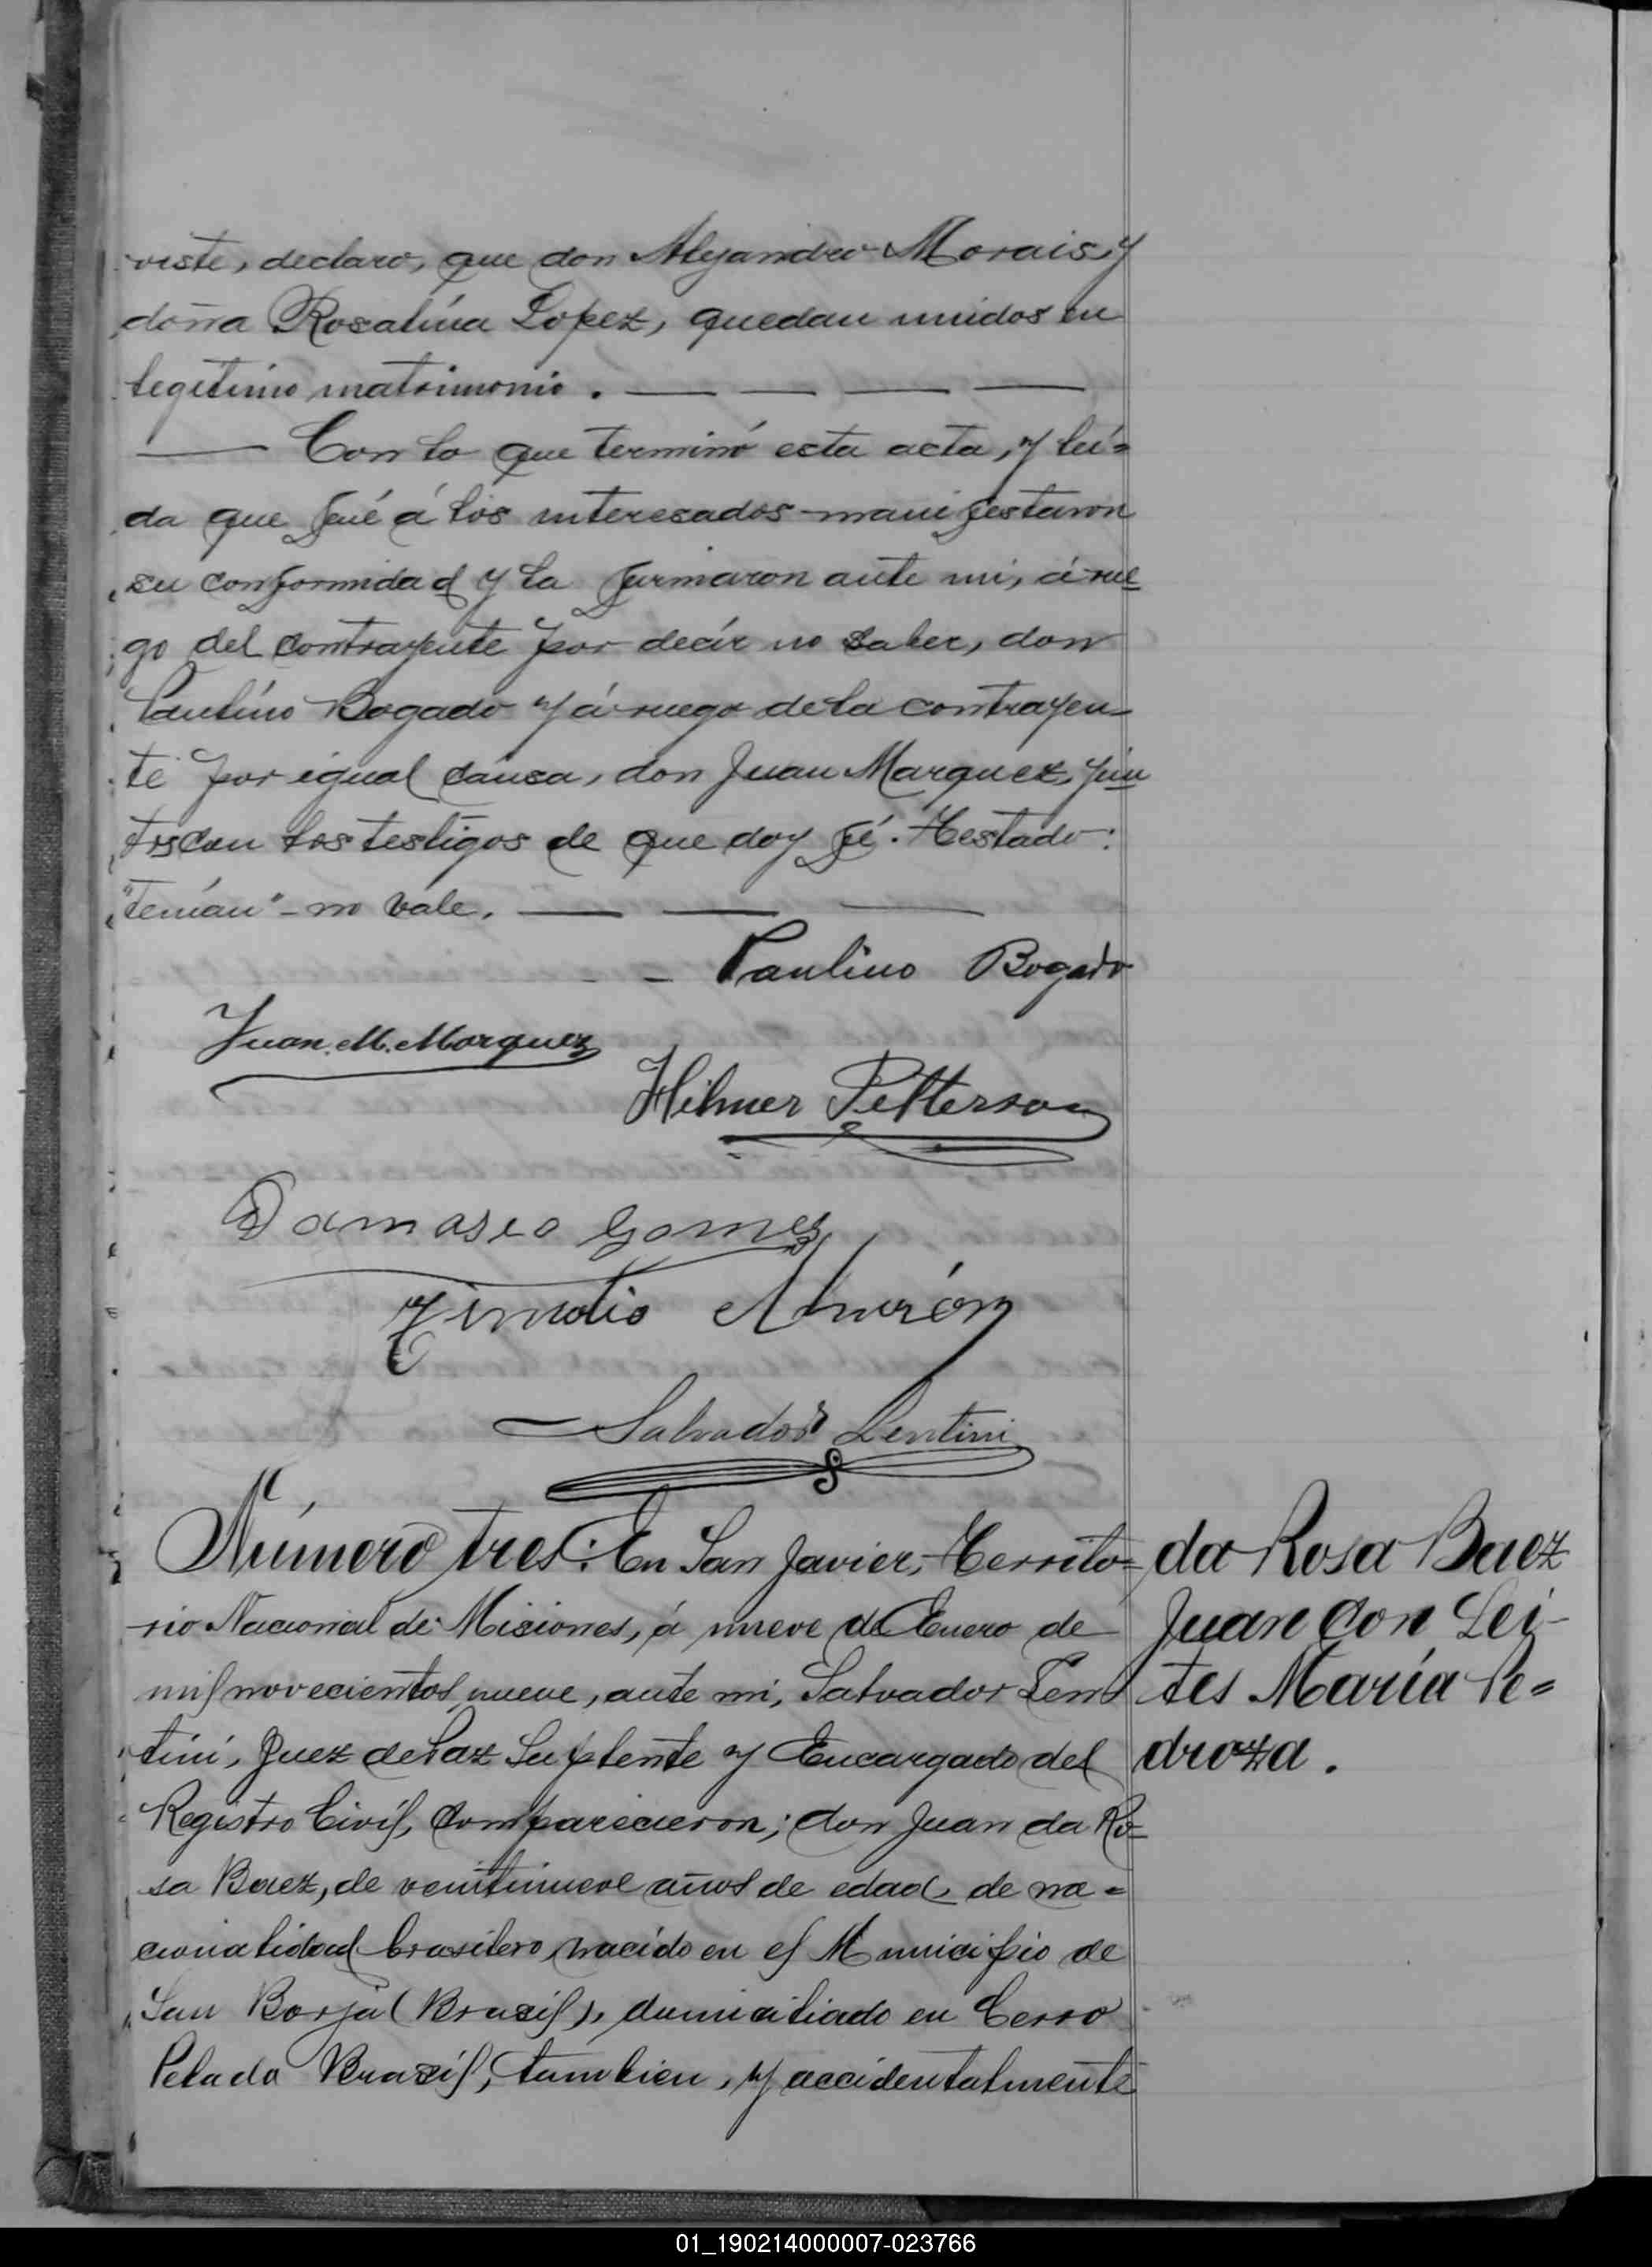 viste, declaro, que don Alejandro Morais, y
doña Rosalína Lopez, quedan unidos en
legítimo matrimonio. — — — —
— Con lo que terminó esta acta, y leí=
da que fué á los interesados manifestaron
su conformidad y la firmaron ante mi, á rue
go del contrayente por decír no saber, don
Paulíno Bogado y á ruego de la contrayen-
te por igual causa, don Juan Marquez, jun
tos con los testigos de que doy fé. Testado:
"tenían" - no vale. — — —
Paulino Bogado
Juan. M. Marquez
Hilmer Petterson
Damasio Gomez
Timotio Almirón
Salvador Lentini
Número tres: En San Javier, Territo=
rio Nacional de Misiones, á nueve de Enero de
mil novecientos nueve, ante mi, Salvador Len
tini, Juez de Paz Suplente y Encargado del
Registro Civil, comparecieron; don Juan da Ro=
sa Baez, de veintinueve años de edad, de na=
cionalidad brasilero, nacido en el Municipio de
San Borja (Brazil), domiciliado en Cerro
Pelado Brazil, tambien, y accidentalmente
da Rosa Baez
Juan con Lei-
tes María Pe=
droza.
01_190214000007-023766